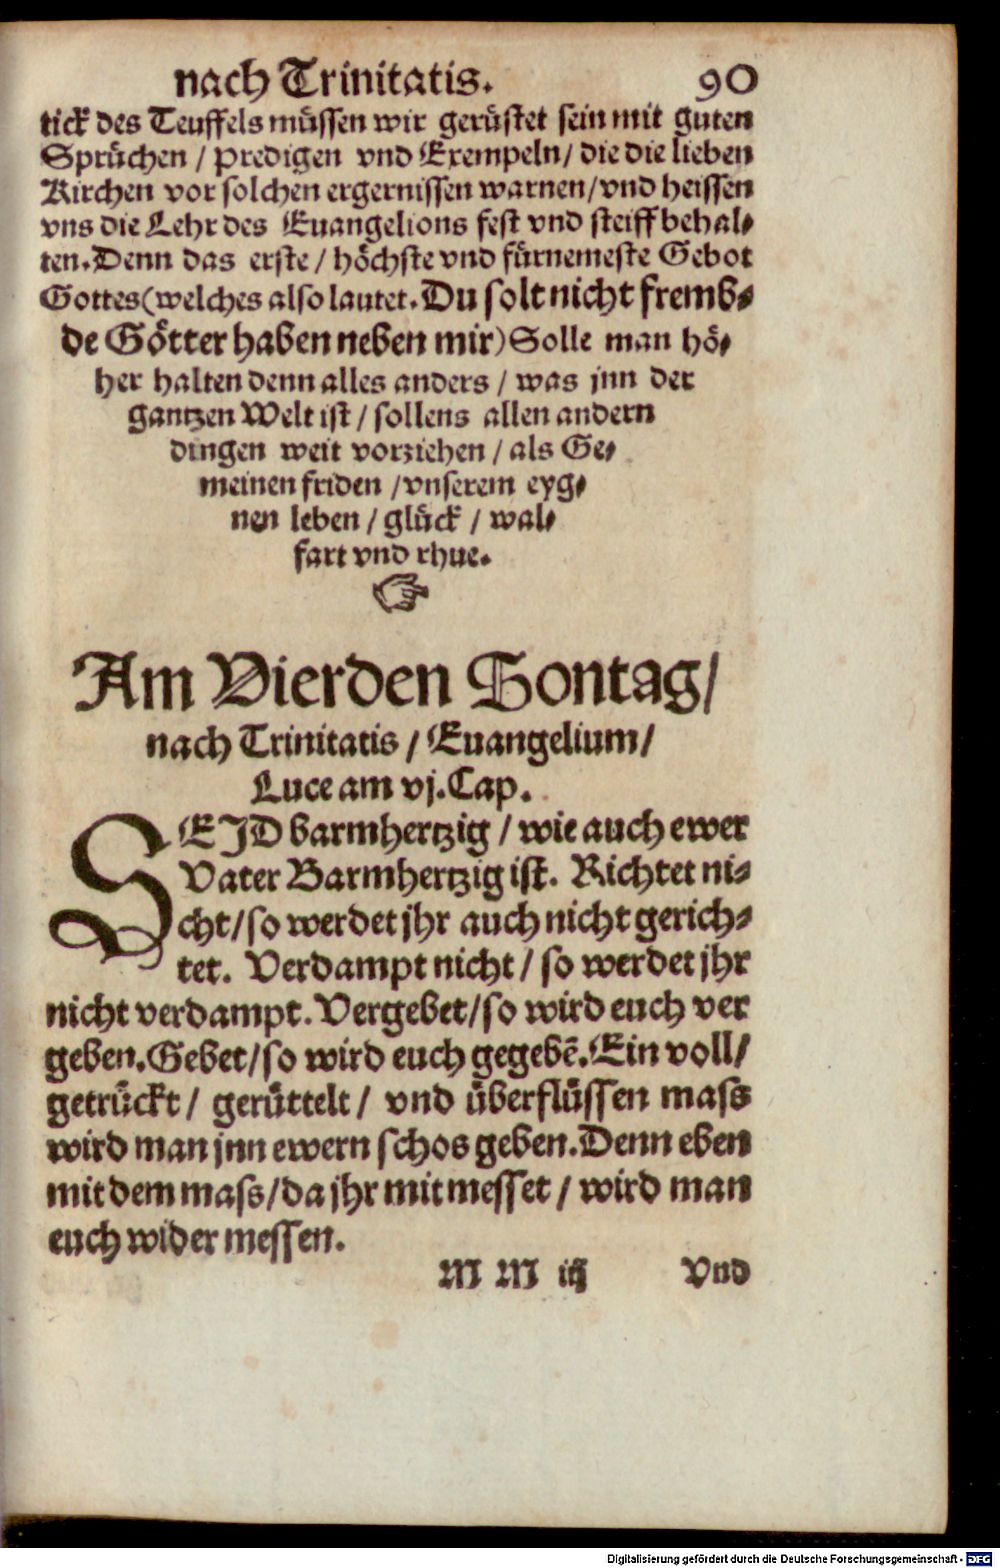 nach Trinitatis. 90
tick des Teuffels müssen wir gerüstet sein mit guten
Sprüchen / predigen vnd Exempeln / die die lieben
Kirchen vor solchen ergernissen warnen / vnd heissen
vns die Lehr des Euangelions fest vnd steiff behal-
ten. Denn das erste / höchste vnd fürnemeste Gebot
Gottes (welches also lautet. Du solt nicht fremb-
de Götter haben neben mir) Solle man hö-
her halten denn alles anders / was jnn der
gantzen Welt ist / sollens allen andern
dingen weit vorziehen / als Ge-
meinen friden / vnserem eyg-
nen leben / glück / wal-
fart vnd rhue.
☞
Am Vierden Sontag /
nach Trinitatis / Euangelium /
Luce am vj. Cap.
SEJD barmhertzig / wie auch ewer
Vater Barmhertzig ist. Richtet ni-
cht / so werdet jhr auch nicht gerich-
tet. Verdampt nicht / so werdet jhr
nicht verdampt. Vergebet / so wird euch ver
geben. Gebet / so wird euch gegebē. Ein voll /
getrückt / gerüttelt / vnd überflüssen mass
wird man jnn ewern schos geben. Denn eben
mit dem mass / da jhr mit messet / wird man
euch wider messen.
MM iij Vnd
Digitalisierung gefördert durch die Deutsche Forschungsgemeinschaft - DFG